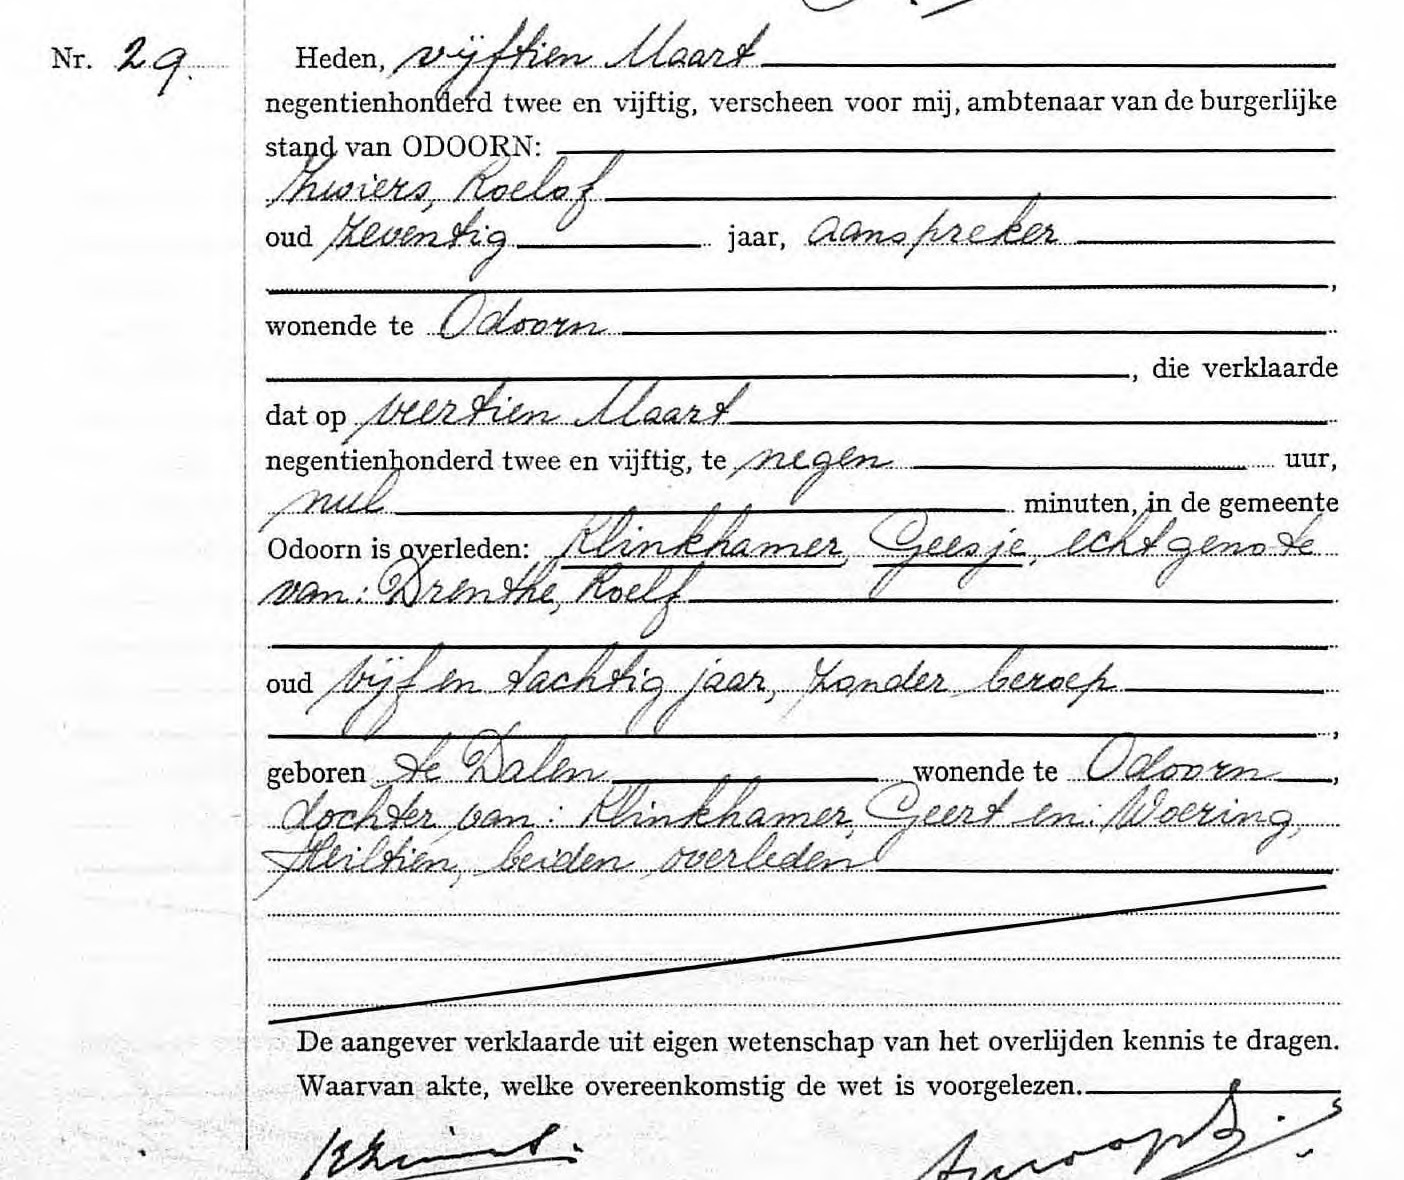 Nr. 29. Heden, vijftien Maart
negentienhonderd twee en vijftig, verscheen voor mij, ambtenaar van de burgerlijke
stand van ODOORN:
Zwiers, Roelof
oud zeventig jaar, aanspreker
,
wonende te Odoorn
, die verklaarde
dat op veertien Maart
negentienhonderd twee en vijftig, te negen uur,
nul minuten, in de gemeente
Odoorn is overleden: Klinkhamer, Geesje, echtgenote
van: Drenthe, Roelf
oud vijf en tachtig jaar, zonder beroep
,
geboren te Dalen wonende te Odoorn,
dochter van: Klinkhamer, Geert en: Woering,
Heiltien, beiden overleden
De aangever verklaarde uit eigen wetenschap van het overlijden kennis te dragen.
Waarvan akte, welke overeenkomstig de wet is voorgelezen.